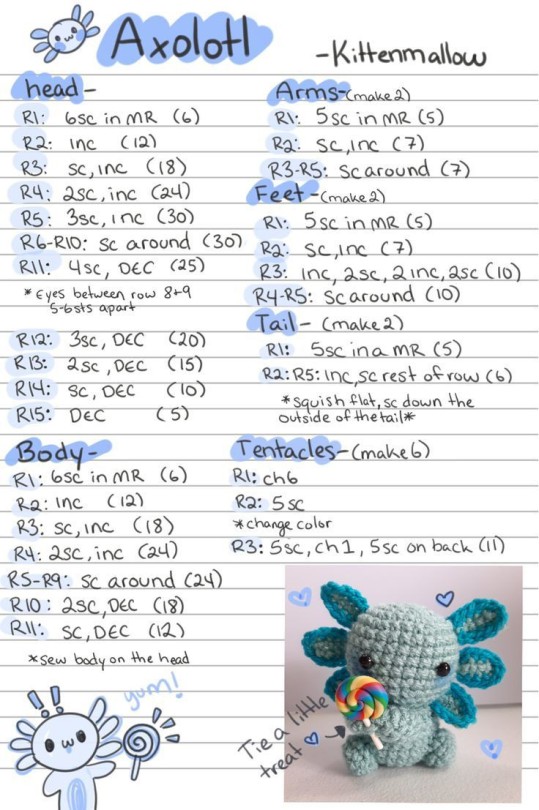 Axolotl
-Kittenmallow
head-
R1: 6sc in MR (6)
R2: inc (12)
R3: sc, inc (18)
R4: 2sc, inc (24)
R5: 3sc, inc (30)
R6-R10: sc around (30)
R11: 4sc, DEC (25)
*Eyes between row 8+9
5-6sts apart
R12: 3sc, DEC (20)
R13: 2sc, DEC (15)
R14: sc, DEC (10)
R15: DEC (5)
Arms-(make 2)
R1: 5sc in MR (5)
R2: sc, inc (7)
R3-R5: sc around (7)
Feet-(make 2)
R1: 5sc in MR (5)
R2: sc, inc (7)
R3: inc, 2sc, 2inc, 2sc (10)
R4-R5: sc around (10)
Tail- (make 2)
R1: 5sc in a MR (5)
R2:R5: inc, sc rest of row (6)
*squish flat, sc down the
outside of the tail*
Body-
R1: 6sc in MR (6)
R2: inc (12)
R3: sc, inc (18)
R4: 2sc, inc (24)
R5-R9: sc around (24)
R10: 2sc, DEC (18)
R11: sc, DEC (12)
*sew body on the head
Tentacles-(make 6)
R1: ch6
R2: 5sc
*change color
R3: 5sc, ch1, 5sc on back (11)
yum!
Tie a little
treat